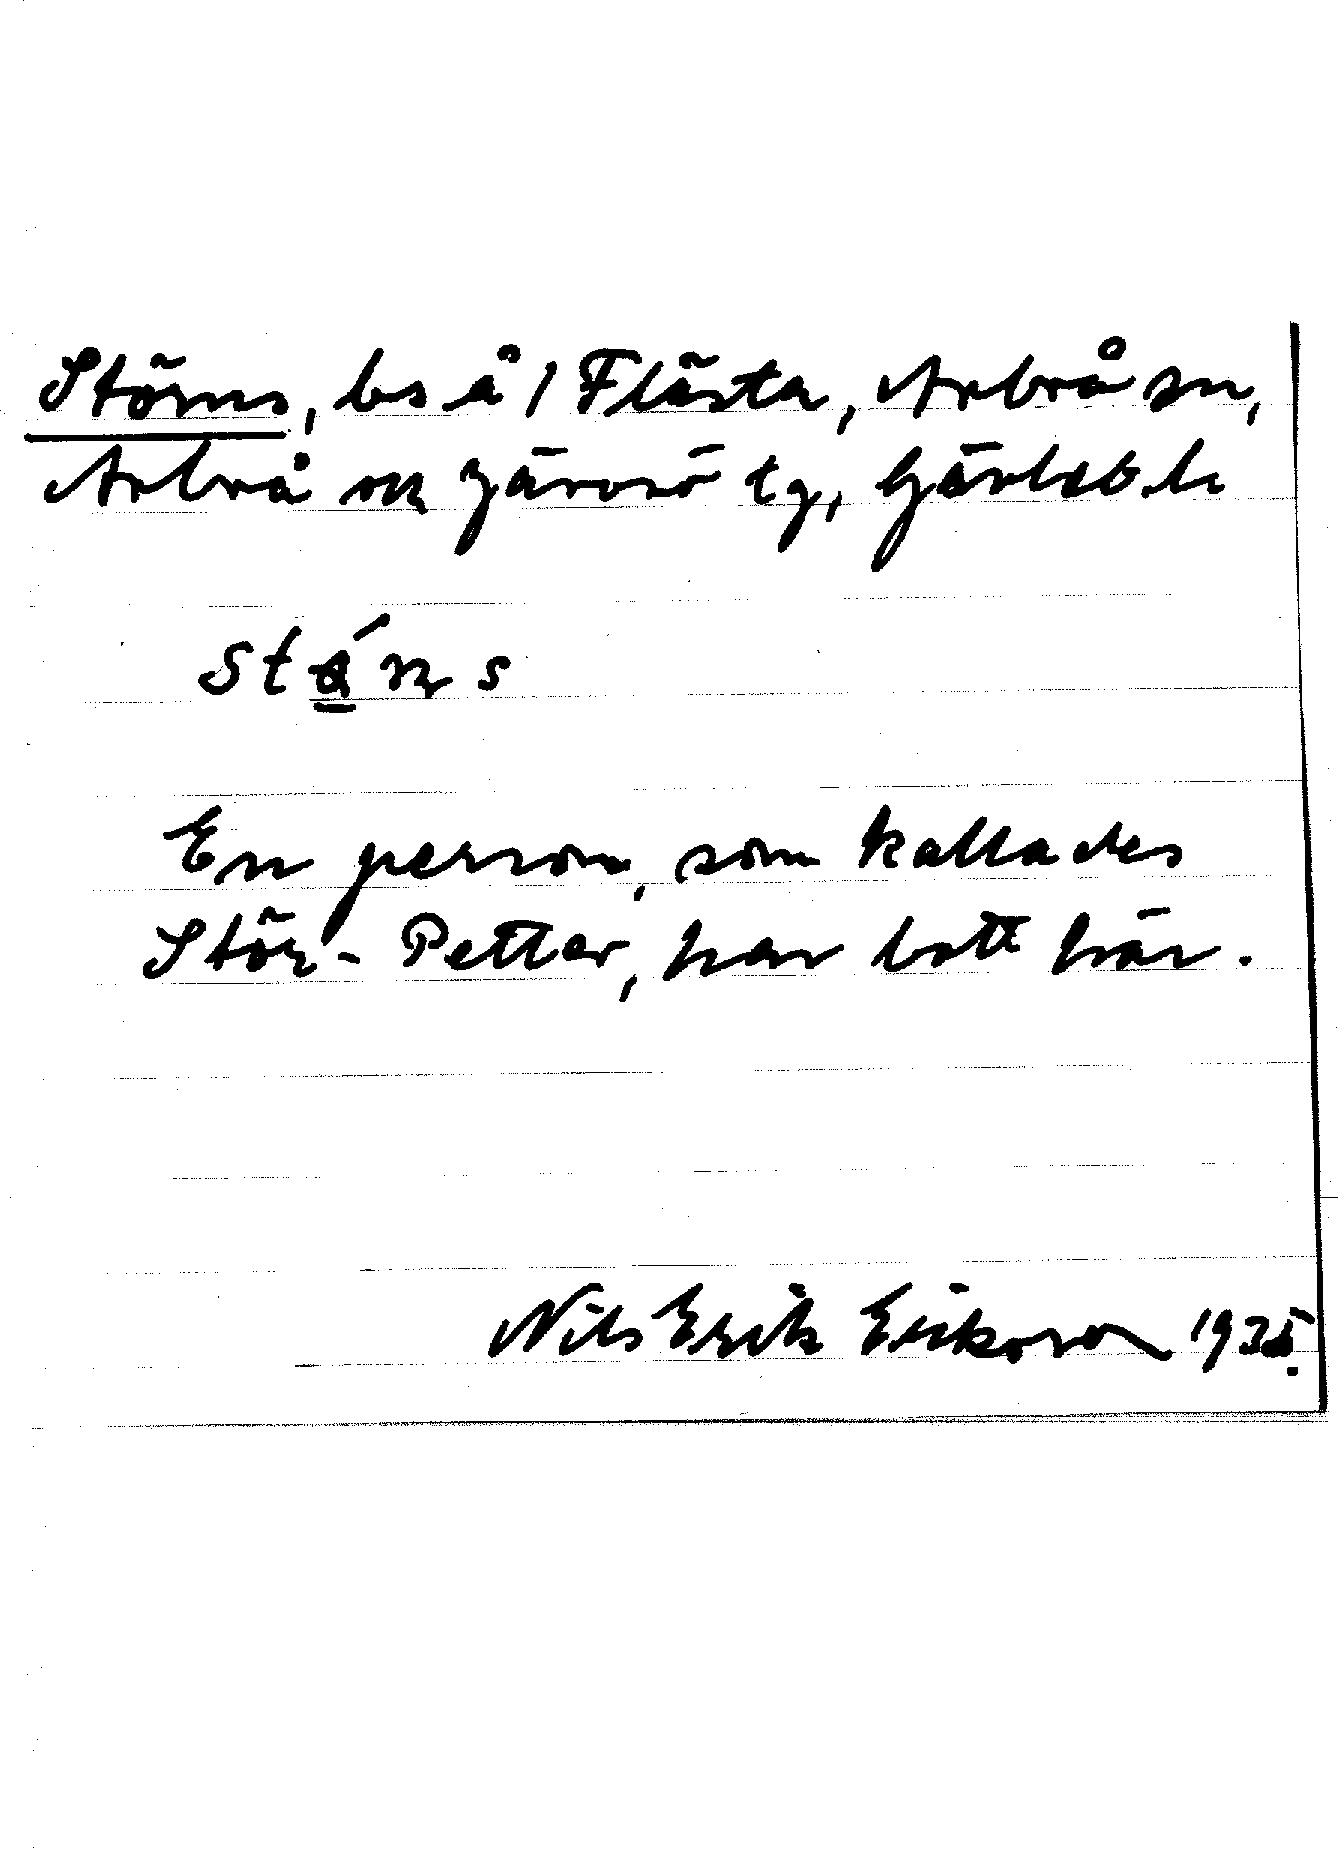 Störns, bs å 1 Flästa, Arbrå sn,
Arbrå och Järvsö tg, Gävleb. l.
En person, som kallades
Stör-Petter, har bott här.
Nils Erik Eriksson 1935.